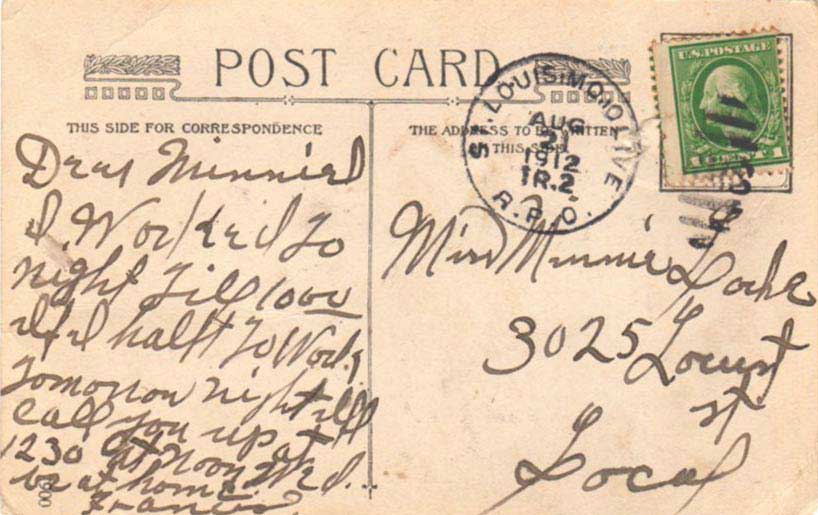 POST CARD
THIS SIDE FOR CORRESPONDENCE
THE ADDRESS TO BE WRITTEN
ON THIS SIDE
ST. LOUIS, MO. OLIVE
AUG
1912
TR.2
R.P.O.
U.S. POSTAGE
1 CENT 1
Dear Minnie
I Worked To
night Till 1000
If I half To Work
Tomorrow night Ill
Call you up at
1230 at Noon Wed.
be at home
Francis
Miss Minnie
3025 Locust
st
Local